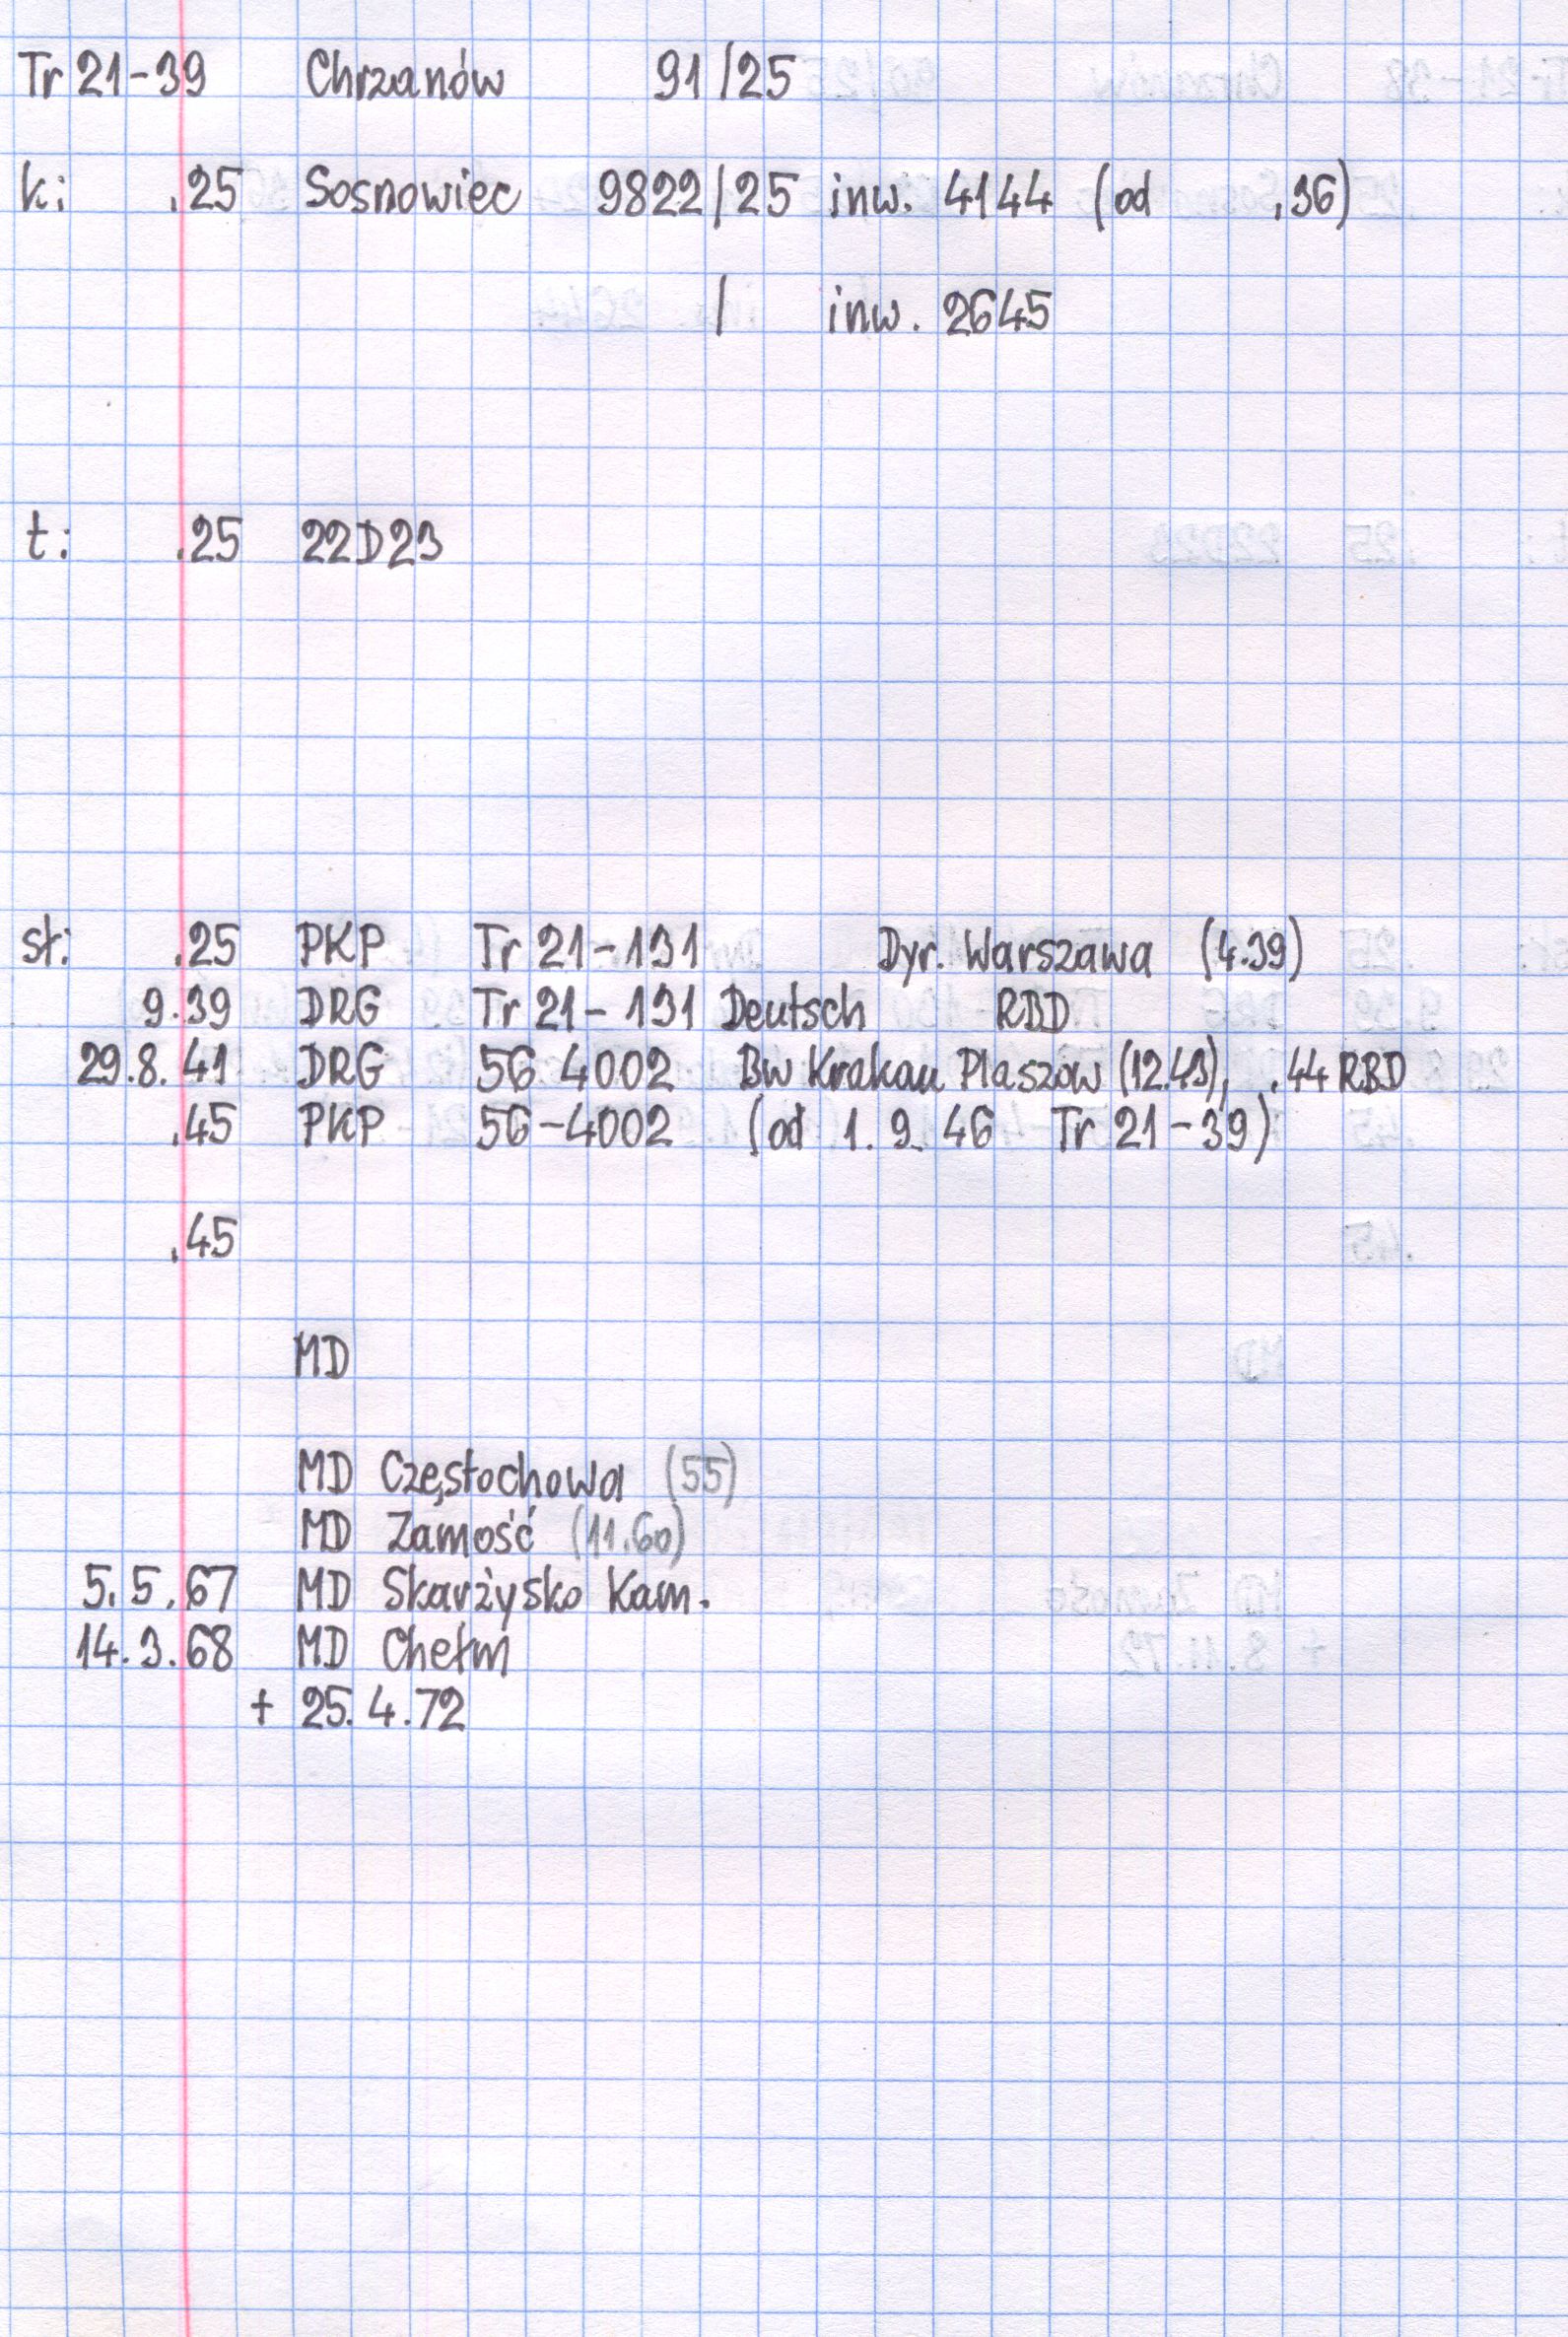 Tr 21-39 Chrzanów 91/25
k: .25 Sosnowiec 9822/25 inw. 4144 (od .36)
/ inw. 2645
t: .25 22D23
st: .25 PKP Tr 21-131 Dyr. Warszawa (4.39)
9.39 DRG Tr 21-131 Deutsch RBD
29.8.41 DRG 56 4002 Bw Krakau Plaszow (12.43), .44 RBD
.45 PKP 56-4002 (od 1.9.46 Tr 21-39)
.45
MD
MD Częstochowa (55)
MD Zamość (11.60)
5.5.67 MD Skarżysko Kam.
14.3.68 MD Chełm
+ 25.4.72